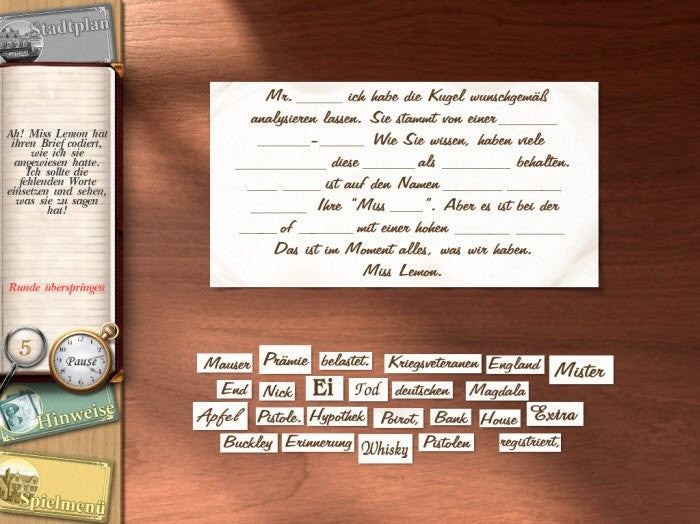 Stadtplan
Ah! Miss Lemon hat
ihren Brief codiert,
wie ich sie
angewiesen hatte.
Ich sollte die
fehlenden Worte
einsetzen und sehen,
was sie zu sagen
hat!
Runde überspringen
5
Pause
Hinweise
Spielmenü
Mr. ______ ich habe die Kugel wunschgemäß
analysieren lassen. Sie stammt von einer ______
______-______ Wie Sie wissen, haben viele
______ diese ______ als ______ behalten.
______ ______ ist auf den Namen ______ ______
______ Ihre "Miss ______". Aber es ist bei der
______ of ______ mit einer hohen ______ ______
Das ist im Moment alles, was wir haben.
Miss Lemon.
Mauser Prämie belastet. Kriegsveteranen England Mister
End Nick Ei Tod deutschen Magdala
Apfel Pistole. Hypothek Poirot, Bank House Extra
Buckley Erinnerung Whisky Pistolen registriert,